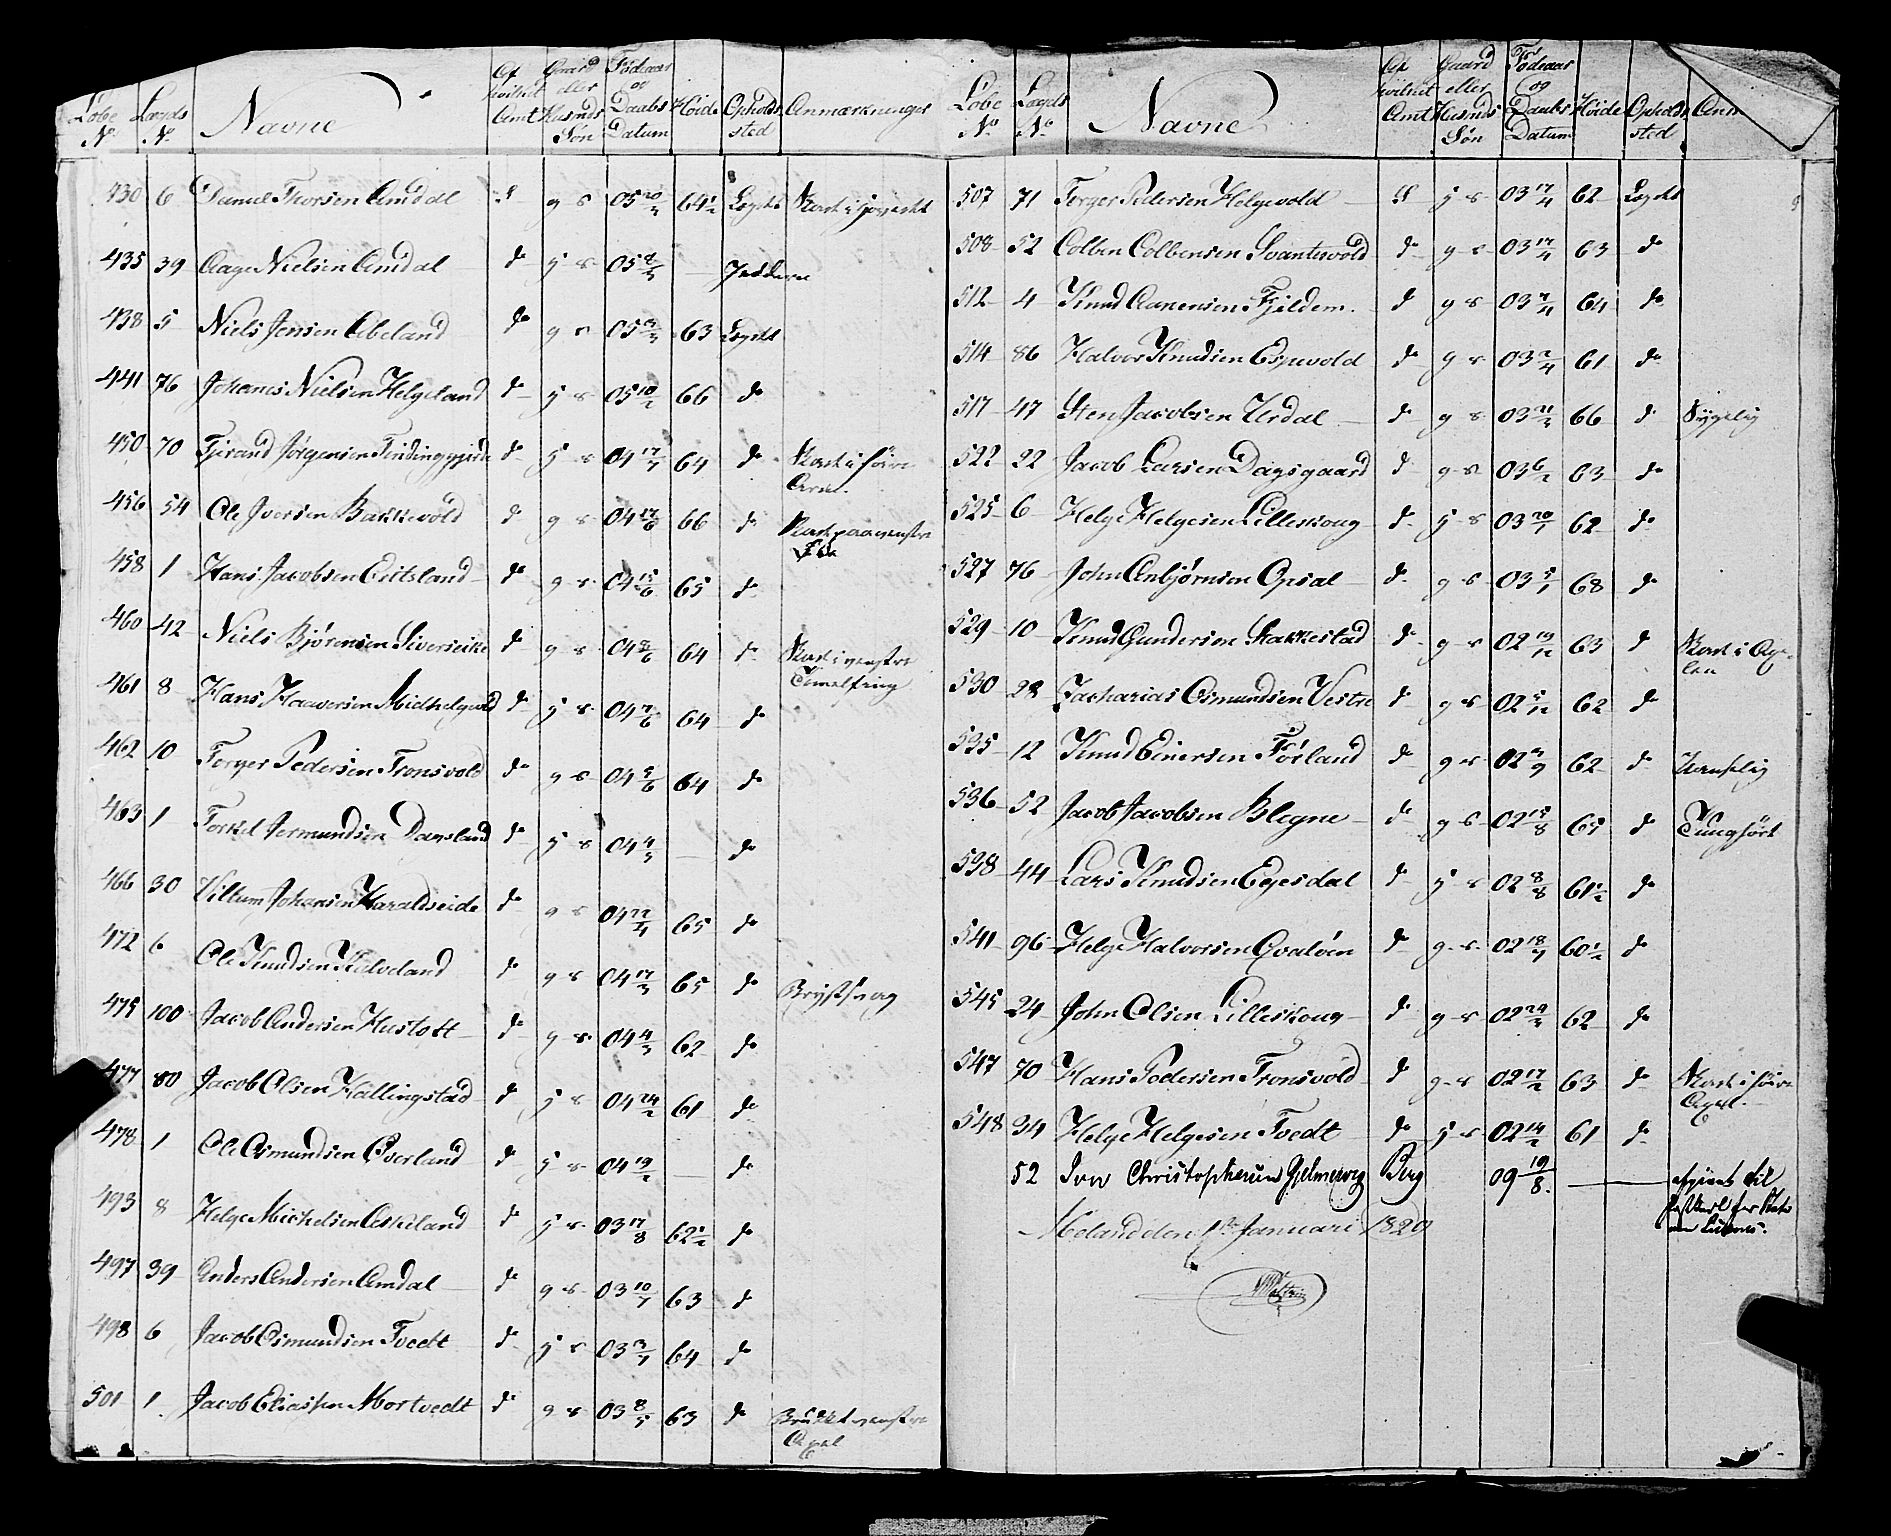 Løbe Nº Lægds Nº Navne Af hvilket Amt Gaard eller Husmds Søn Fødeaar og Daabs Datum Høide Opholdssted Anmærkninger
430 6 Daniel Thorsen Amdal g s 05 20/4 64½ Lægdet
435 39 Aage Nielsen Amdal do j s 05 8/3 — Jedderen
438 5 Niels Jensen Abeland do g s 05 3/3 63 Lægdet
441 76 Johanes Nielsen Helgeland do j s 05 10/2 66 do
450 70 Jørgensen do j s 04 17/7 64 do
456 54 Ole Iversen Bakkevold do g s 04 17/6 66 do
458 1 Hans Jacobsen Eitsland do g s 04 15/6 65 do
460 42 Niels Bjørensen Siverseike do g s 04 64 do
461 8 Hans Haaversen do j s 04 7/6 64 do
462 10 Torger Pedersen Tronsvold do g s 04 5/6 64 do
463 1 Torkel Jermundsen Dagsland do j s 04 4/3 — do
466 30 Villum Johansen Haraldseide do g s 04 22/4 65 do
472 6 Ole Knudsen Kalveland do g s 04 17/3 65 do Brystsvag
475 100 Jacob Andersen Hustoft do g s 04 4/3 62 do
477 80 Jacob Olsen Hallingstad do j s 04 24/2 61 do
478 1 Ole Osmundsen Øverland do j s 04 19/2 — do
493 8 Helge Michelsen Eskeland do j s 03 17/8 62½ do
497 39 Anders Andersen Amdal do g s 03 10/7 63 do
498 6 Jacob Osmundsen Tvedt do j s 03 3/7 64 do
501 1 Jacob Eliassen Mortvedt do g s 03 8/5 63 do Brudt venstre
Løbe Nº Lægds Nº Navne Af hvilket Amt Gaard eller Husmds Søn Fødeaar og Daabs Datum Høide Opholdssted Anm
507 71 Torger Pedersen Helgevold j s 03 17/4 62 Lægdet
508 52 Colben Colbensen Svantesvold do g s 03 17/4 63 do
512 4 Knud Aanensen Fjeldem do g s 03 7/4 64 do
514 86 Halvor Knudsen Espevold do g s 03 2/4 61 do
517 47 Sten Jacobsen Urdal do g s 03 21/3 66 do Sygelig
522 22 Jacob Larsen Dagsgaard do g s 03 6/2 63 do
525 6 Helge Helgesen Lilleskoug do j s 03 20/1 62 do
527 76 John Anbjørnsen Opsal do g s 03 5/1 68 do
529 10 Knud Gundersen Stakkestad do g s 02 19/12 63 do
530 28 Zacharias Osmundsen Vestre do g s 02 5/12 62 do
535 12 Knud Einersen Førland do g s 02 3/9 62 do
536 52 Jacob Jacobsen Blegne do g s 02 15/8 65 do Tungført
538 44 Lars Knudsen Egesdal do j s 02 8/8 61½ do
541 96 Helge Halvorsen Qvaløen do g s 02 18/7 60½ do
545 24 John Olsen Lilleskoug do g s 02 24/3 62 do
547 70 Hans Pedersen Tronsvold do g s 02 17/2 63 do
548 34 Helge Helgesen Tvedt do j s 02 14/2 61 do
52 Christophersen Berg 09 19/8 — afgivet til
Meland den 1ste Januari 1829